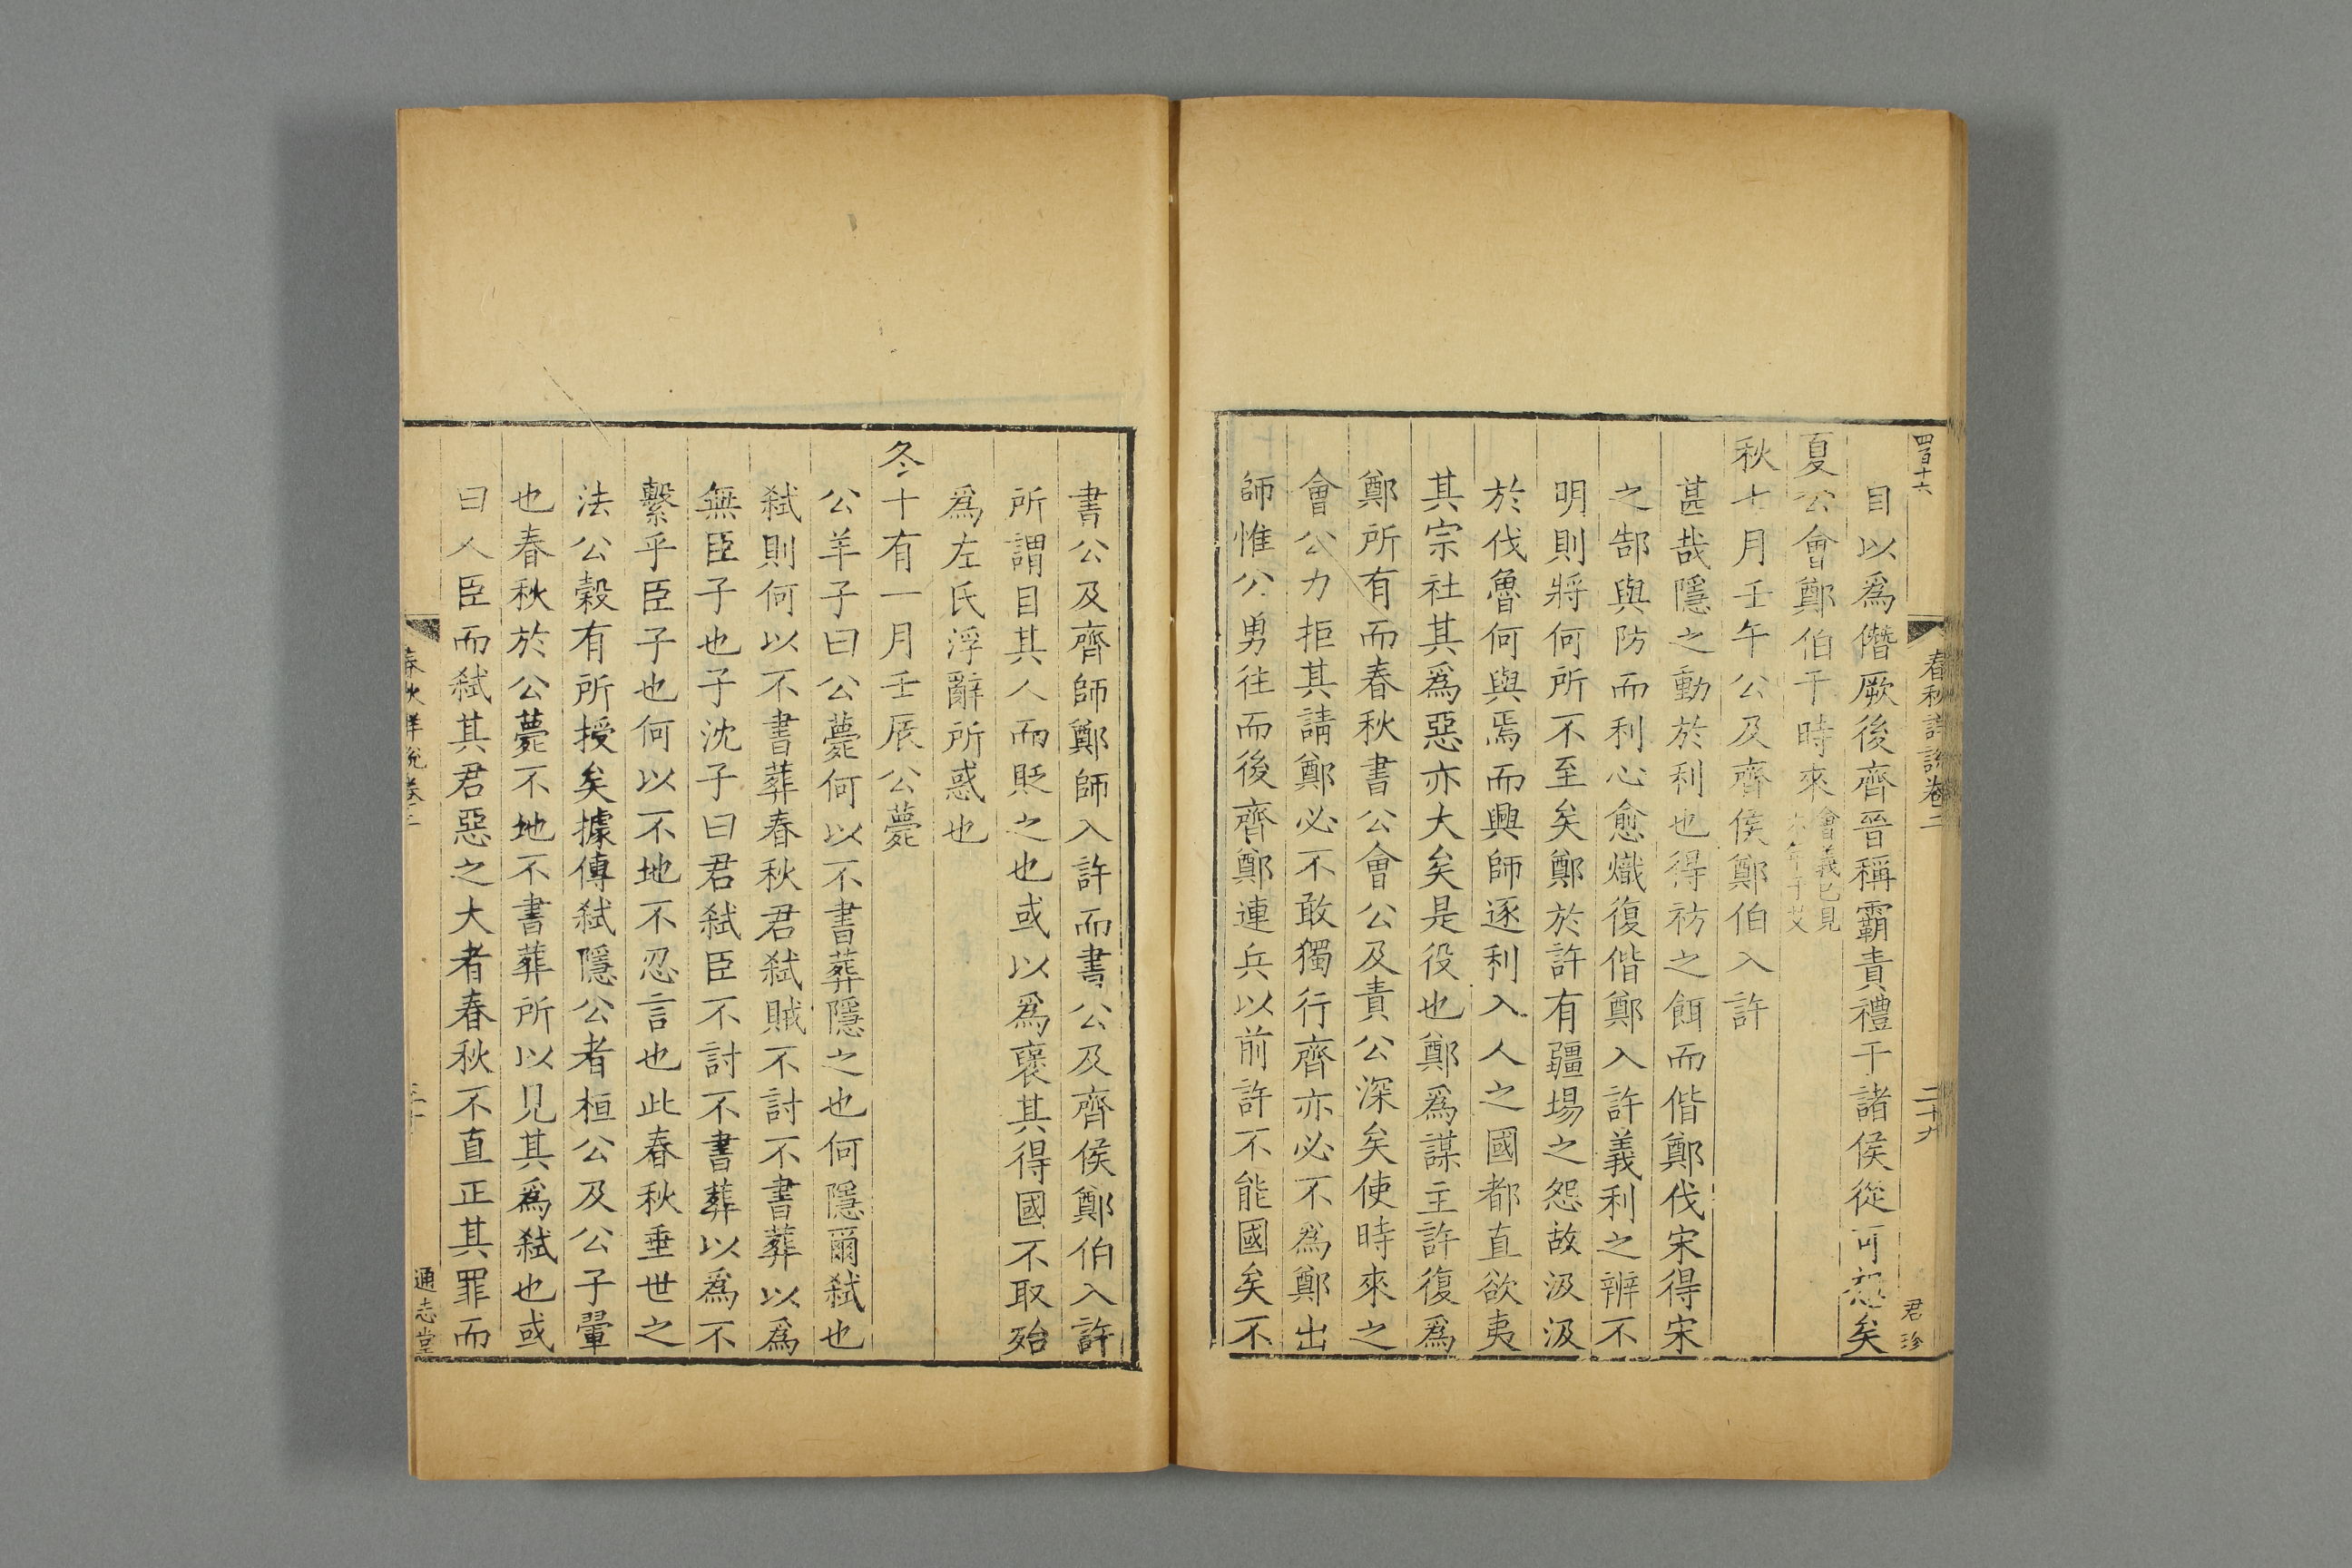 四百十六
春秋詳說卷二
二十九
君珍
目以爲僭厥後齊晉稱霸責禮于諸侯從可知矣
夏公會鄭伯于時來
會義已見
六年于艾
秋七月壬午公及齊侯鄭伯入許
甚哉隱之動於利也得祊之餌而偕鄭伐宋得宋
之郜與防而利心愈熾復偕鄭入許義利之辨不
明則將何所不至矣鄭於許有疆埸之怨故汲汲
於伐魯何與焉而興師逐利入人之國都直欲夷
其宗社其爲惡亦大矣是役也鄭爲謀主許復爲
鄭所有而春秋書公會公及責公深矣使時來之
會公力拒其請鄭必不敢獨行齊亦必不爲鄭出
師惟公勇往而後齊鄭連兵以前許不能國矣不
書公及齊師鄭師入許而書公及齊侯鄭伯入許
所謂目其人而貶之也或以爲褒其得國不取殆
爲左氏浮辭所惑也
冬十有一月壬辰公薨
公羊子曰公薨何以不書葬隱之也何隱爾弑也
弑則何以不書葬春秋君弑賊不討不書葬以爲
無臣子也子沈子曰君弑臣不討不書葬以爲不
繫乎臣子也何以不地不忍言也此春秋垂世之
法公穀有所授矣據傳弑隱公者桓公及公子翬
也春秋於公薨不地不書葬所以見其爲弑也或
曰人臣而弑其君惡之大者春秋不直正其罪而
春秋詳說卷二
三十
通志堂